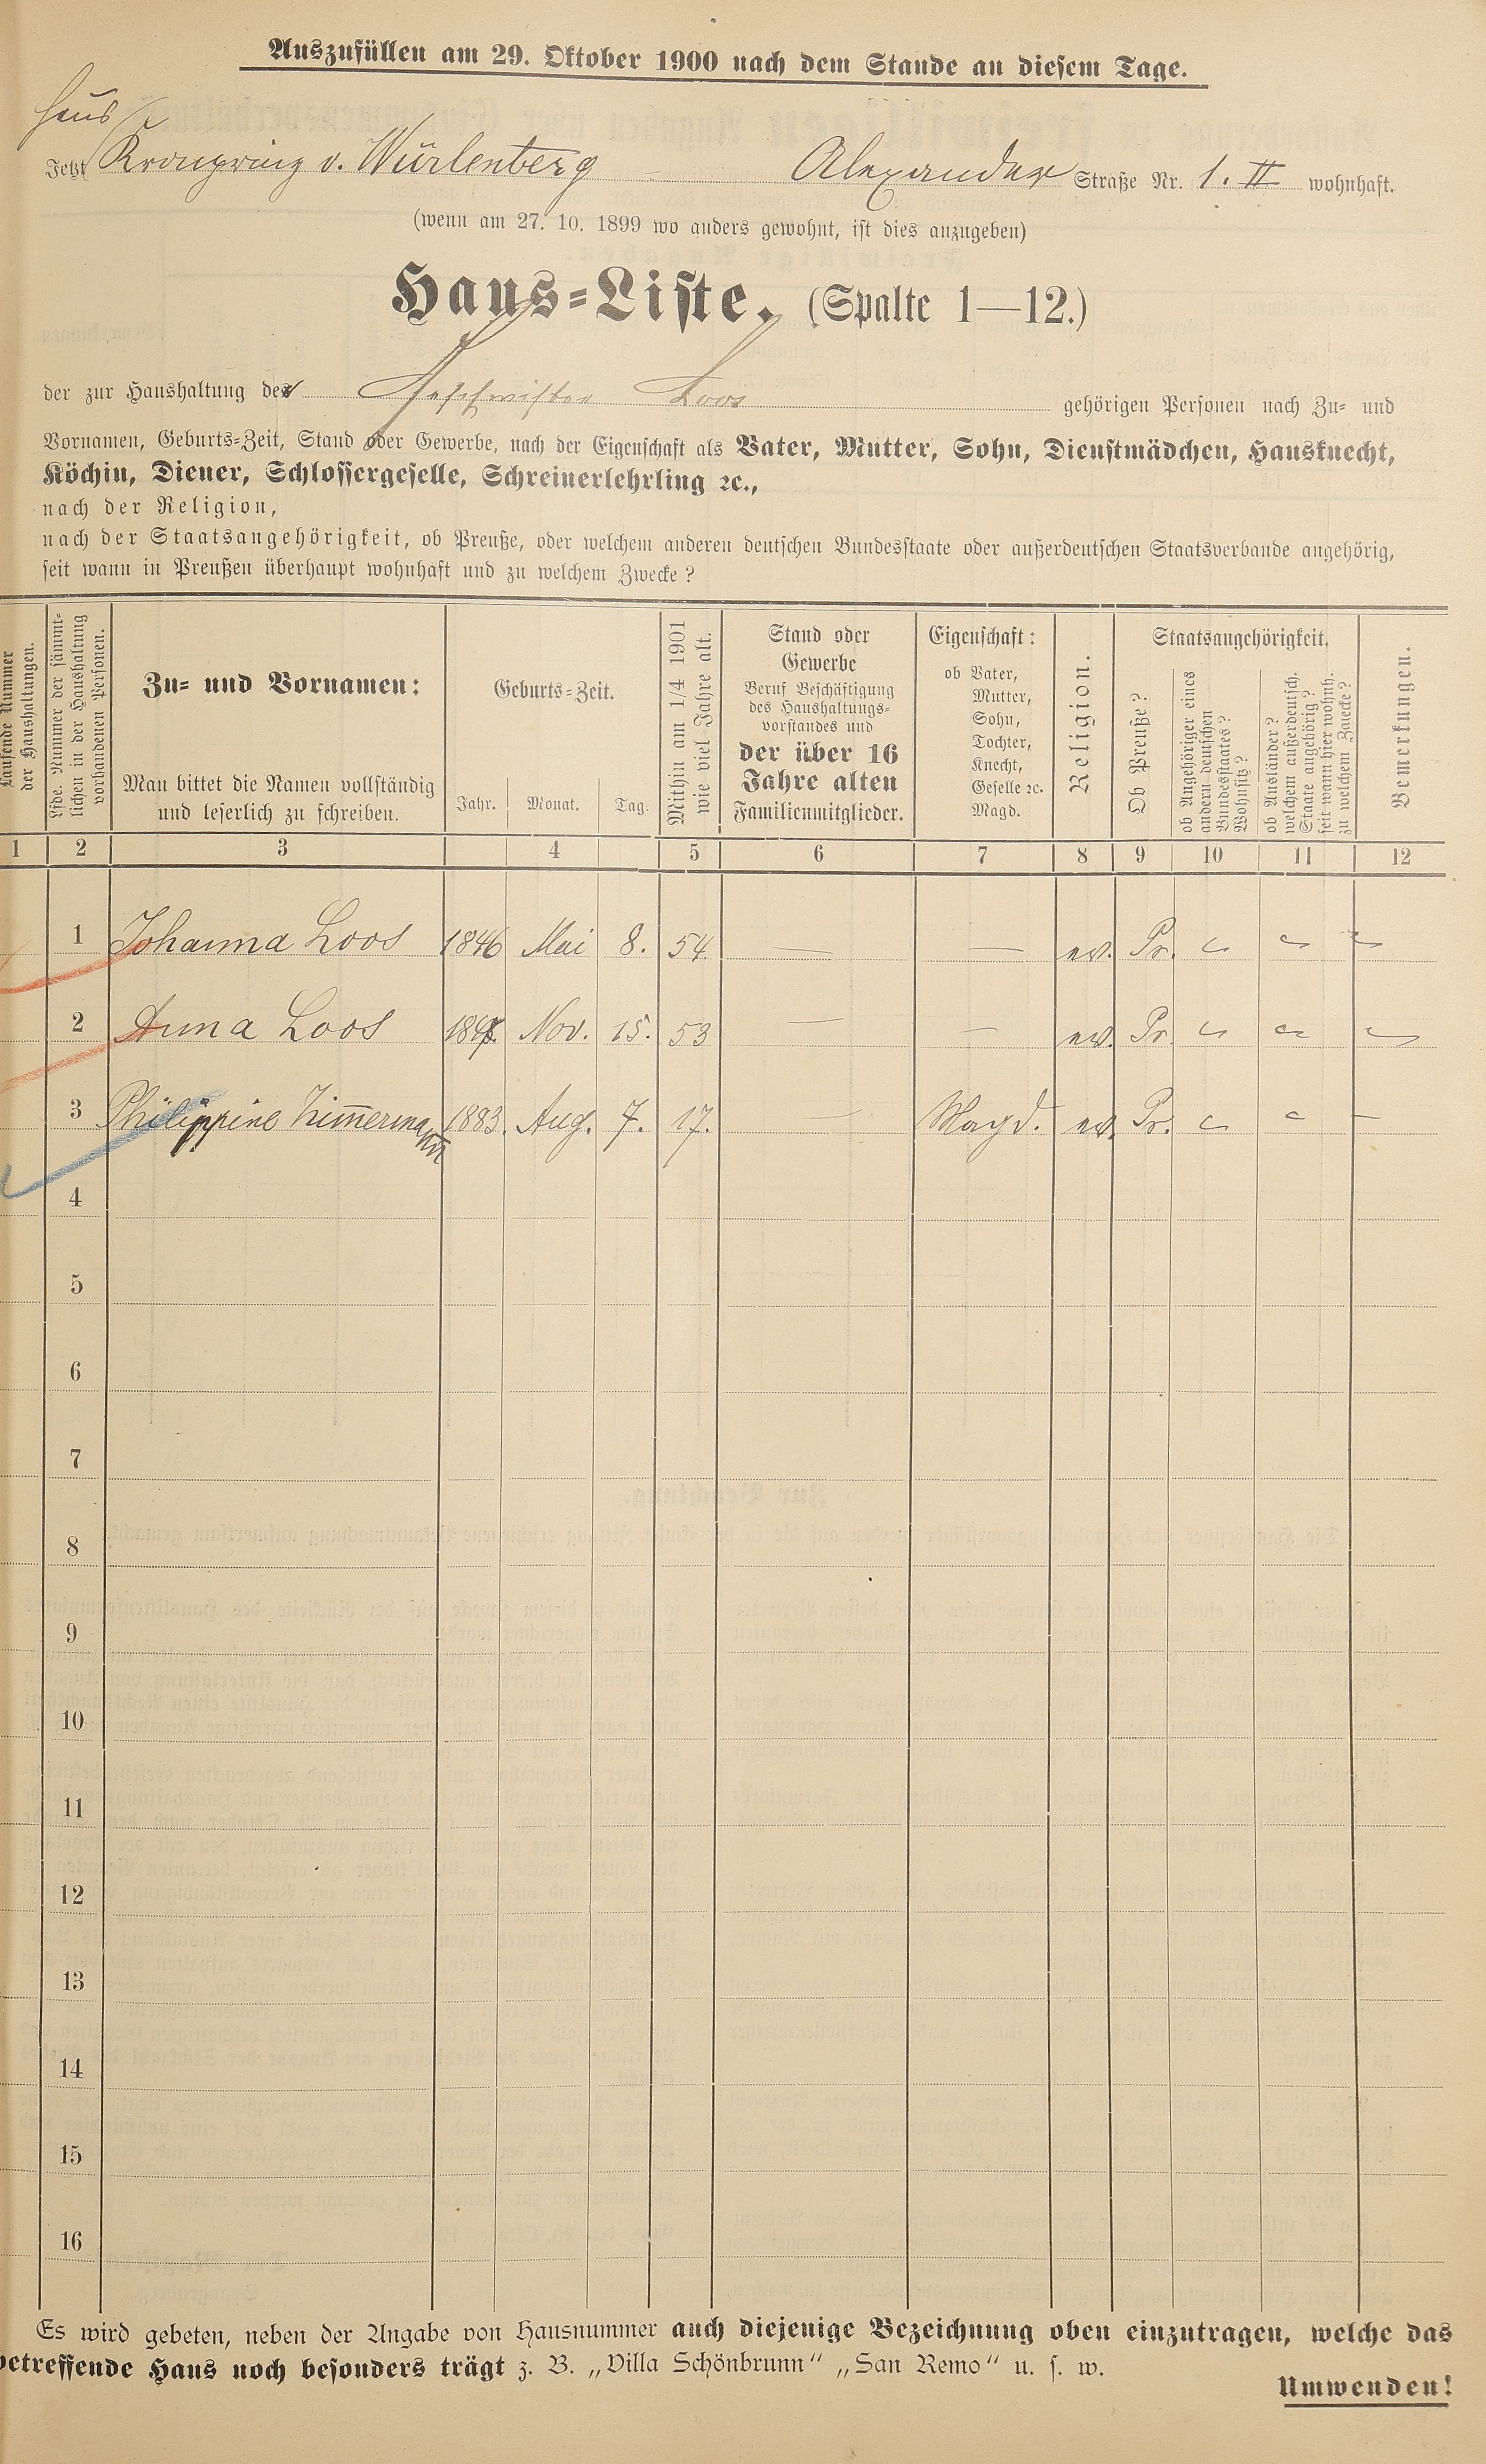 Auszufüllen am 29. Oktober 1900 nach dem Stande an diesem Tage.
Haus
Jetzt Kronprinz v. Würtenberg Alexander Straße Nr. 1. II wohnhaft.
(wenn am 27. 10. 1899 wo anders gewohnt, ist dies anzugeben)
Haus-Liste. (Spalte 1—12.)
der zur Haushaltung der Geschwister Loos gehörigen Personen nach Zu- und
Vornamen, Geburts-Zeit, Stand oder Gewerbe, nach der Eigenschaft als Vater, Mutter, Sohn, Dienstmädchen, Hausknecht,
Köchin, Diener, Schlossergeselle, Schreinerlehrling ꝛc.,
nach der Religion,
nach der Staatsangehörigkeit, ob Preuße, oder welchem anderen deutschen Bundesstaate oder außerdeutschen Staatsverbande angehörig,
seit wann in Preußen überhaupt wohnhaft und zu welchem Zwecke?
Laufende Nummer
der Haushaltungen.
Lfde. Nummer der sämmt-
lichen in der Haushaltung
vorhandenen Personen.
Zu- und Vornamen:
Man bittet die Namen vollständig
und leserlich zu schreiben.
Geburts-Zeit.
Jahr. Monat. Tag.
Mithin am 1/4 1901
wie viel Jahre alt.
Stand oder
Gewerbe
Beruf Beschäftigung
des Haushaltungs-
vorstandes und
der über 16
Jahre alten
Familienmitglieder.
Eigenschaft:
ob Vater,
Mutter,
Sohn,
Tochter,
Knecht,
Geselle ꝛc.
Magd.
Religion.
Staatsangehörigkeit.
Ob Preuße?
ob Angehöriger eines
andern deutschen
Bundesstaates?
Wohnsitz?
ob Ausländer?
welchem außerdeutsch.
Staate angehörig?
seit wann hier wohnh.
zu welchem Zwecke?
Bemerkungen.
1 2 3 4 5 6 7 8 9 10 11 12
1 Johanna Loos 1846 Mai 8. 54 — — ev. Pr.
2 Anna Loos 1847 Nov. 15. 53 — — ev. Pr.
3 Philippine Zim̄ermann 1883. Aug. 7. 17. — Magd. ev. Pr.
4
5
6
7
8
9
10
11
12
13
14
15
16
Es wird gebeten, neben der Angabe von Hausnummer auch diejenige Bezeichnung oben einzutragen, welche das
betreffende Haus noch besonders trägt z. B. „Villa Schönbrunn" „San Remo" u. s. w.
Umwenden!